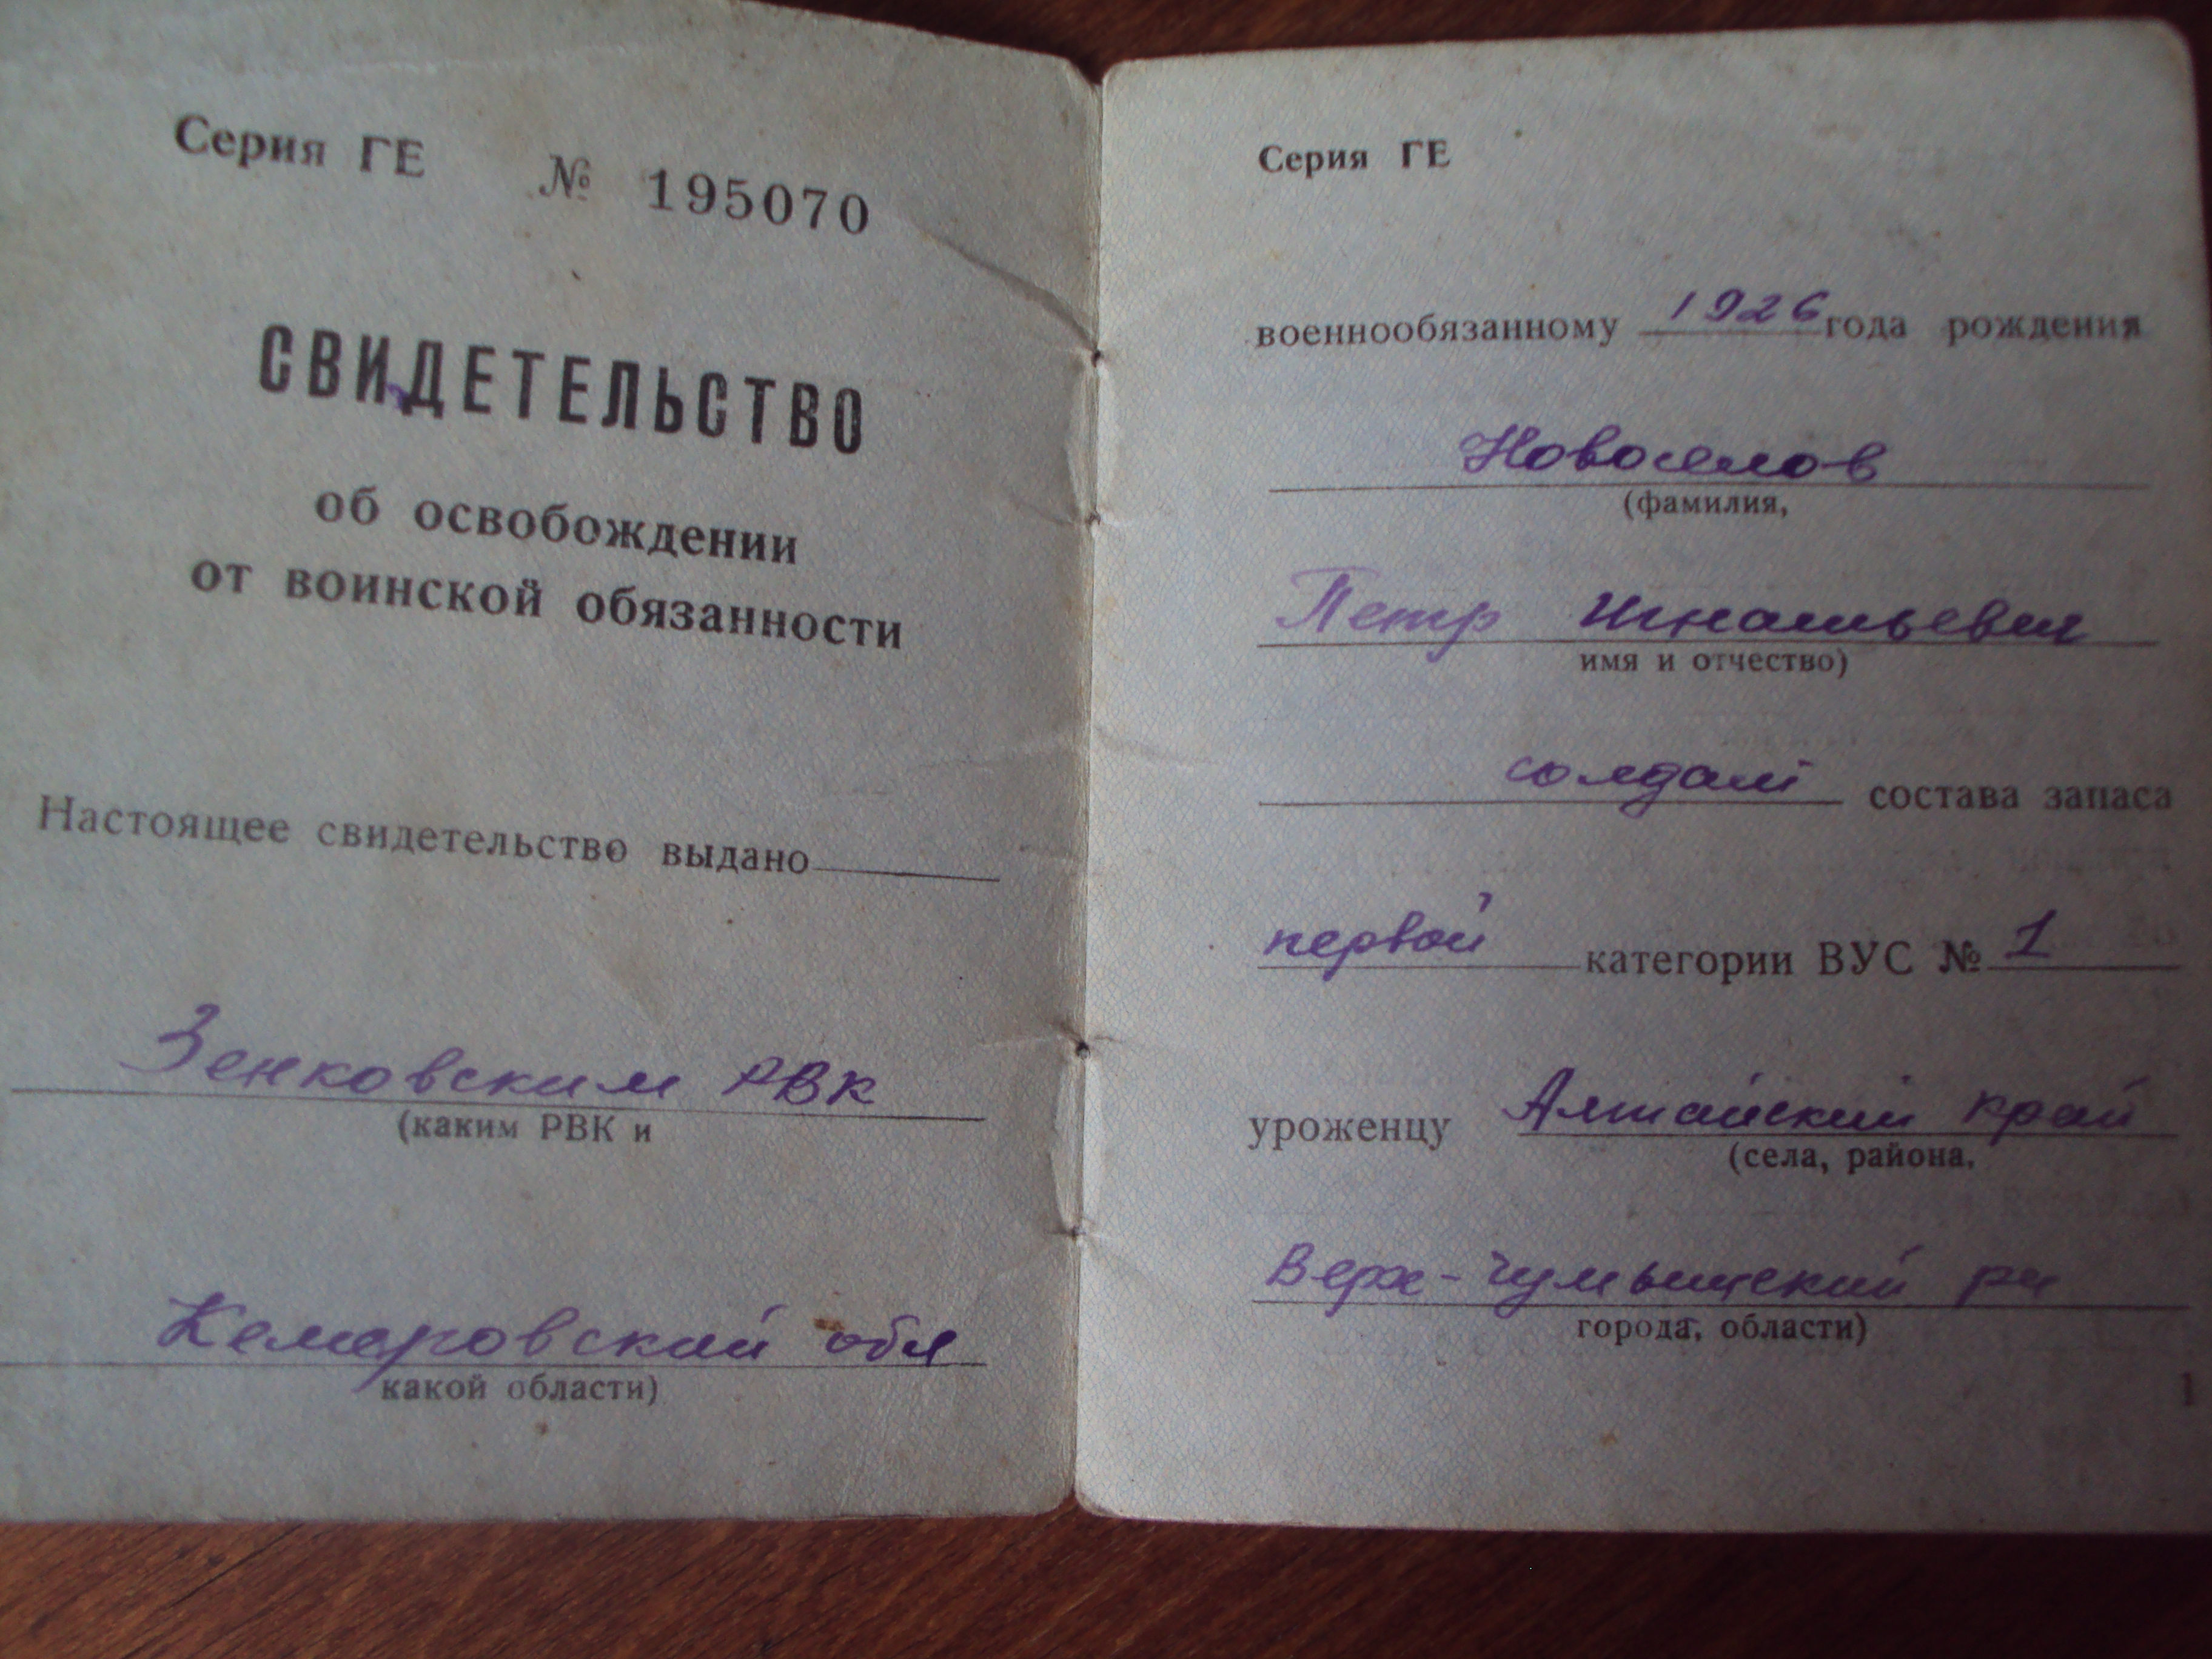 Серия ГЕ № 195070
СВИДЕТЕЛЬСТВО
об освобождении
от воинской обязанности
Настоящее свидетельство выдано
Зенковским РВК
(каким РВК и
Кемеровский обл
какой области)
Серия ГЕ
военнообязанному 1926 года рождения
Новоселов
(фамилия,
Петр Игнатьевич
имя и отчество)
солдат состава запаса
первой категории ВУС № 1
уроженцу Алтайский край
(села, района,
Верх-Чумышский рн
города, области)
1